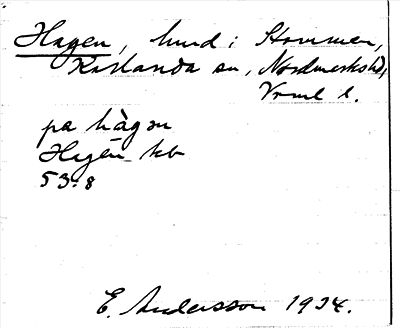 Hagen, hmd i Stommen,
Karlanda sn, Nordmarks hd,
Vrml l.
på hàgən
Hagen kb
53:8
E. Andersson 1924.